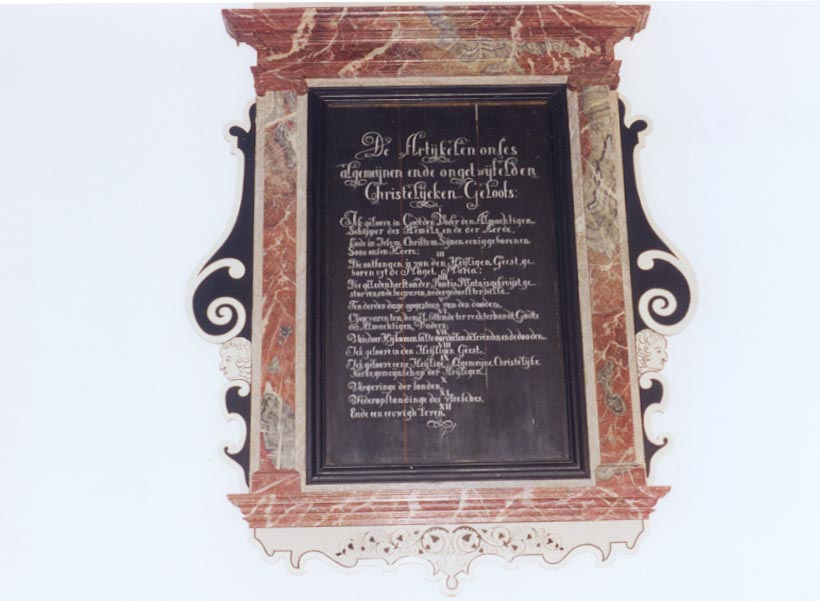 De Artijkelen onses
algemeijnen ende ongetwijfelden
Christelycken Geloofs:
I
Ick geloove in Godt den Vader den Almachtigen
Schepper des Hemels en de der Aerde
II
Ende in Jesum Christum Synen eeniggeboren en
Sone onsen Heere:
III
Die ontfangen is van den Heijligen Geest, ge-
boren uyt de Maget Maria:
IIII
Die geleden heeft onder Pontio Pilato is gekruijst, ge-
storven ende begraven, nedergedaelt ter helle.
V
Ten derden dage opgestaen van den dooden.
VI
Opgevaren ten hemel, sittende ter rechterhandt Godts
des Almachtigen Vaders:
VII
Van daer Hy komen sal te oordeelen de levenden en de dooden.
VIII
Ick geloove in den Heijligen Geest.
IX
Ick geloove eene Heijlige Algemeijne Christelijke
Kerke gemeijnschap der Heijligen.
X
Vergevinge der sonden.
XI
Wederopstandinge des vleesches.
XII
Ende een eeuwigh Leven.